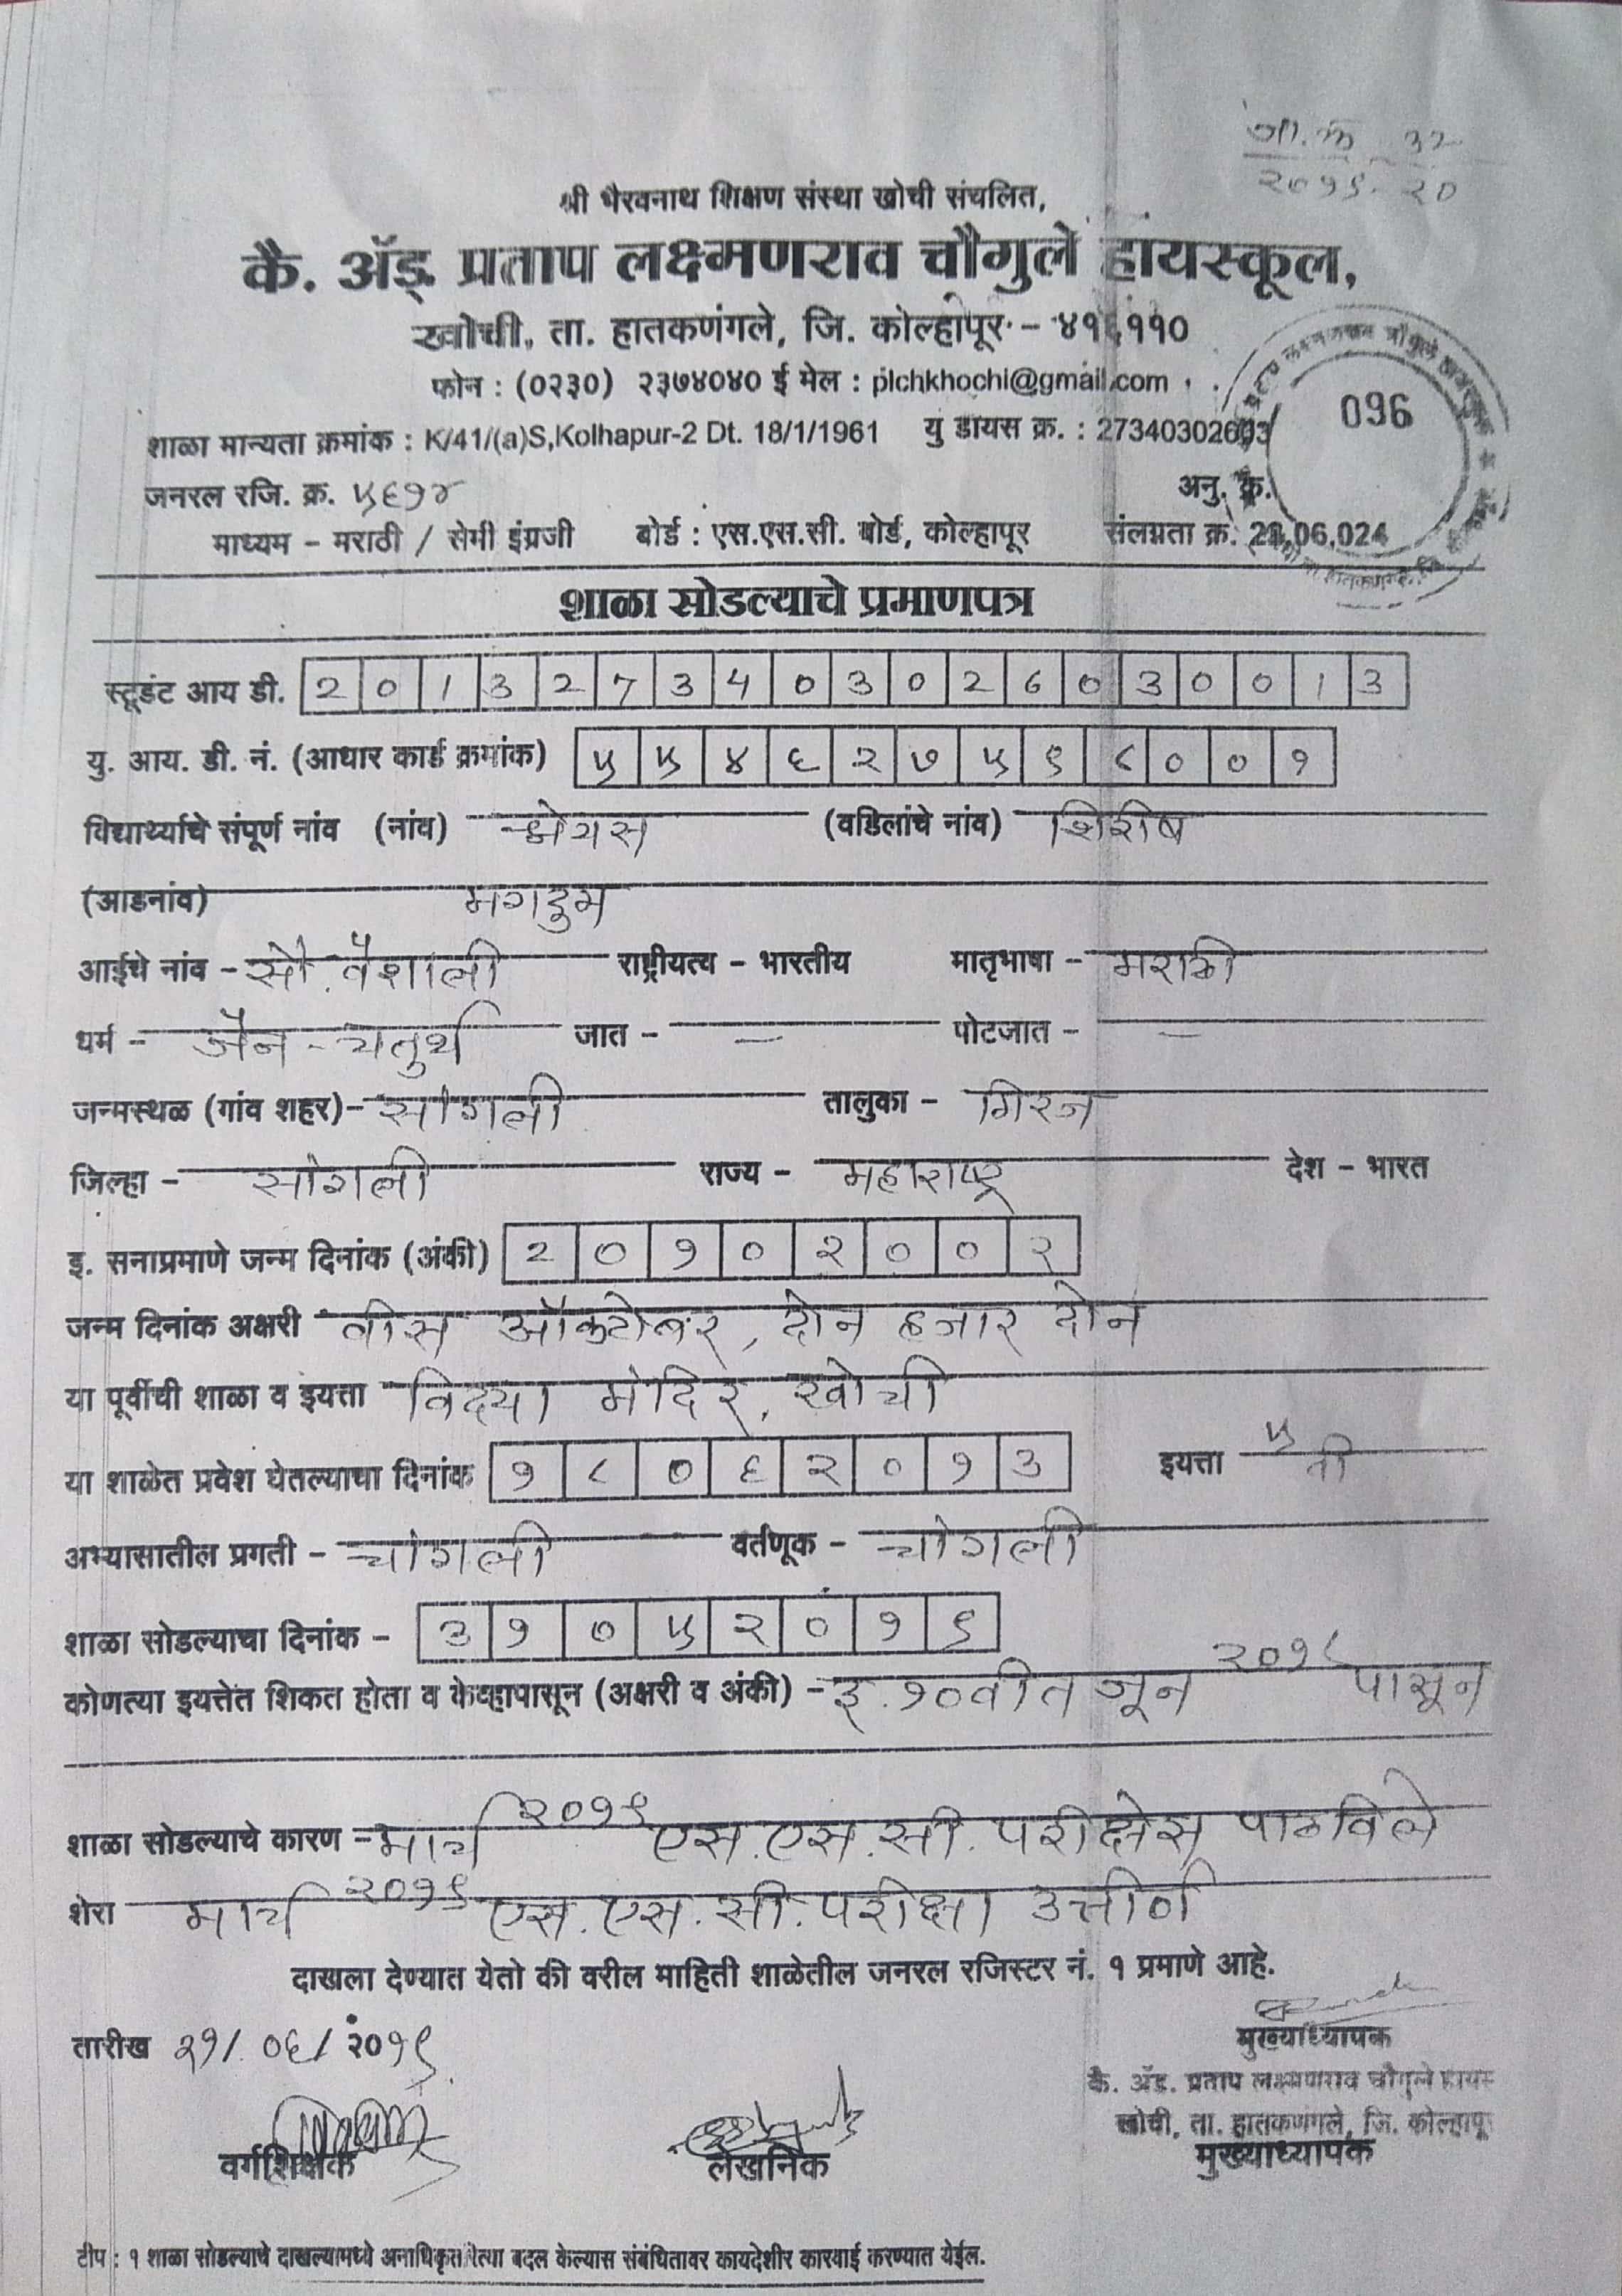 जा.क्र ३२
२०१९-२०
श्री भैरवनाथ शिक्षण संस्था खोची संचलित,
कै. ॲड्. प्रताप लक्ष्मणराव चौगुले हायस्कूल,
खोची, ता. हातकणंगले, जि. कोल्हापूर - ४१६११०
फोन : (०२३०) २३७४०४० ई मेल : plchkhochi@gmail.com
शाळा मान्यता क्रमांक : K/41/(a)S,Kolhapur-2 Dt. 18/1/1961 यु डायस क्र. : 27340302603
096
जनरल रजि. क्र. ५६७४ अनु. क्र.
माध्यम - मराठी / सेमी इंग्रजी बोर्ड : एस.एस.सी. बोर्ड, कोल्हापूर संलग्नता क्र. 23,06,024
शाळा सोडल्याचे प्रमाणपत्र
स्टूडंट आय डी. 2013273403026030013
यु. आय. डी. नं. (आधार कार्ड क्रमांक) ५५४६२७५९८००१
विद्यार्थ्याचे संपूर्ण नांव (नांव) श्रेयस (वडिलांचे नांव) शिरीष
(आडनांव) मगदुम
आईचे नांव - सौ. वैशाली राष्ट्रीयत्व - भारतीय मातृभाषा - मराठी
धर्म - जैन - चतुर्थ जात - — पोटजात - —
जन्मस्थळ (गांव शहर) - सांगली तालुका - मिरज
जिल्हा - सांगली राज्य - महाराष्ट्र देश - भारत
इ. सनाप्रमाणे जन्म दिनांक (अंकी) २०१०२००२
जन्म दिनांक अक्षरी वीस ऑक्टोबर, दोन हजार दोन
या पूर्वीची शाळा व इयत्ता विद्या मंदिर, खोची
या शाळेत प्रवेश घेतल्याचा दिनांक १८०६२०१३ इयत्ता ५ वी
अभ्यासातील प्रगती - चांगली वर्तणूक - चांगली
शाळा सोडल्याचा दिनांक - ३१०५२०१९
कोणत्या इयत्तेत शिकत होता व केव्हापासून (अक्षरी व अंकी) - इ. १०वीत जून २०१८ पासून
शाळा सोडल्याचे कारण - मार्च २०१९ एस.एस.सी. परीक्षेस पाठविले
शेरा मार्च २०१९ एस.एस.सी. परीक्षा उत्तीर्ण
दाखला देण्यात येतो की वरील माहिती शाळेतील जनरल रजिस्टर नं. १ प्रमाणे आहे.
तारीख २१/०६/२०१९
मुख्याध्यापक
कै. ॲड. प्रताप लक्ष्मणराव चौगुले हायस्
खोची, ता. हातकणंगले, जि. कोल्हापू
वर्गशिक्षक लेखनिक मुख्याध्यापक
टीप : १ शाळा सोडल्याचे दाखल्यामध्ये अनाधिकृतरित्या बदल केल्यास संबंधितावर कायदेशीर कारवाई करण्यात येईल.